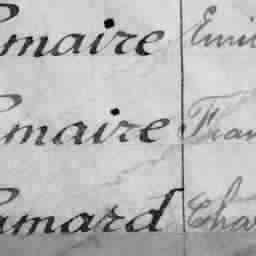 maire Emi
maire Fran
amard Cha